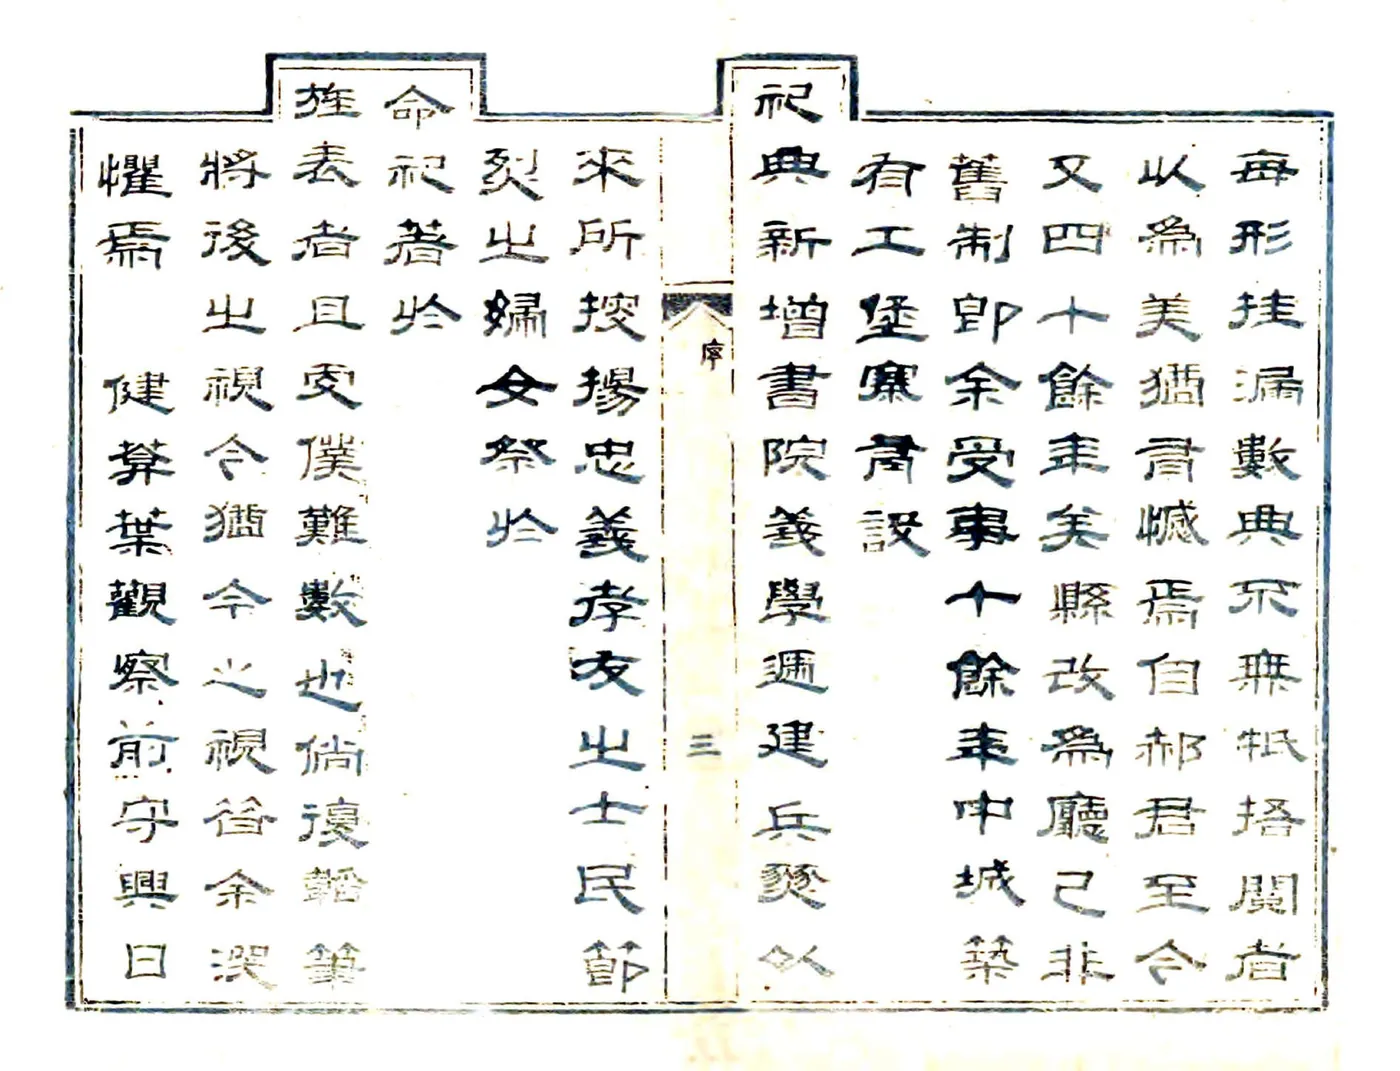 每形挂漏數典不無牴捂閱者
以為美猶胥憾焉自郝君至今
又四十餘年矣縣改為廳已非
舊制即余受事十餘年中城築
有工堡寨胥設
祀典新增書院義學遞建兵燹以
序
三
來所搜揚忠義孝友之士民節
烈之婦女祭於
命祀著於
旌表者且更僕難數也倘復韜筆
將後之視今猶今之視昔余深
懼焉　健葊葉觀察前守興日